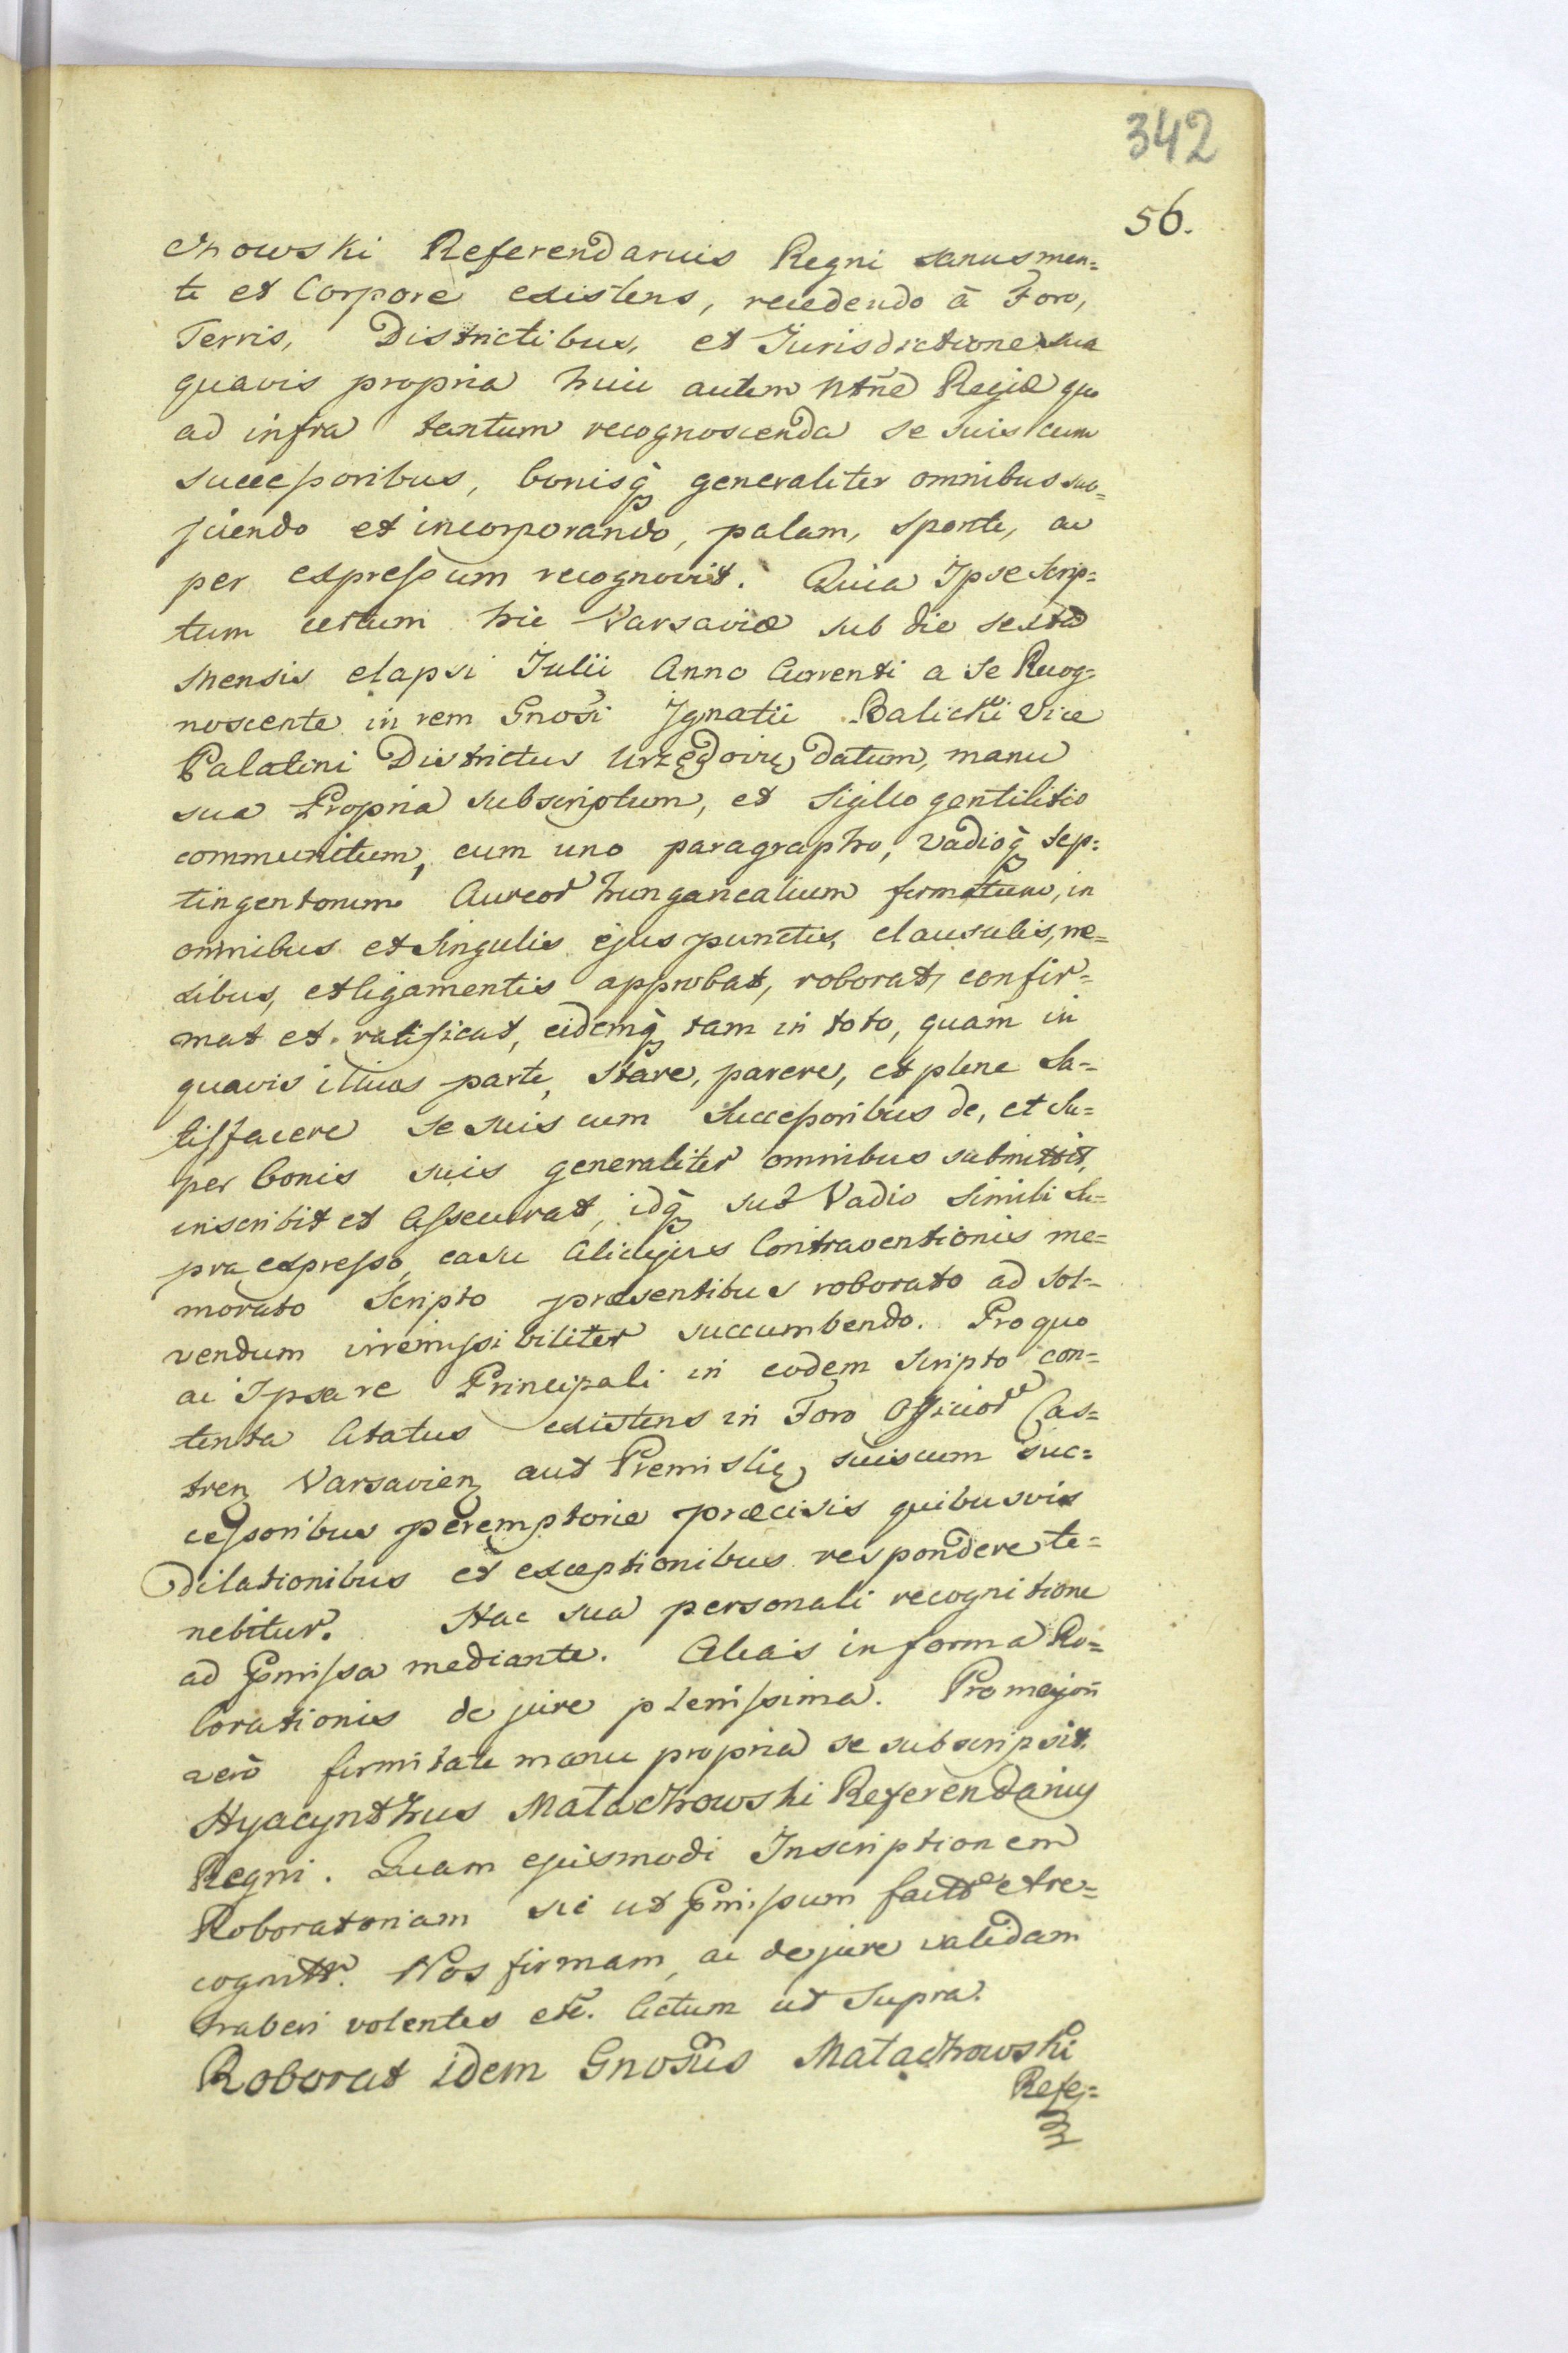 342
56.
chowski Referendarius Regni sanus men=
te et Corpore existens, recedendo à Foro,
Terris, Districtibus, et Jurisdictione sua
quavis propria huic autem Mtñe Regiæ quo
ad infra tantum recognoscenda se suis cum
successoribus, bonisq̃ generaliter omnibus sub=
jiciendo et incorporando, palam, sponte, ac
per expressum recognovit. Quia Ipse Scrip=
tum certum hic Varsaviæ sub die sexta
mensis elapsi Julii Anno Currenti a se Recog=
noscente in rem Gnosi Ignatii Balicki Vice
Palatini Districtus Urzędovię datum, manu
sua Propria subscriptum, et Sigillo gentilitio
communitum, cum uno paragrapho, vadioq̃ sep=
tingentorum Aureor hungaricalium firmatum, in
omnibus et Singulis ejus punctis, clausulis, ne=
xibus, et ligamentis approbat, roborat, confir=
mat et ratificat, eidemq̃ tam in toto, quam in
quavis illius parte, stare, parere, et plene Sa=
tisfacere se suis cum Successoribus de, et Su=
per bonis suis generaliter omnibus submittit,
inscribit et Assecurat, idq̃ sub Vadio simili Su=
pra expresso, casu alicujus Contraventionis me=
morato Scripto præsentibus roborato ad sol=
vendum irremissibiliter succumbendo. Pro quo
ac Ipsa re Principali in eodem Scripto con=
tenta Citatus existens in Foro Officior Cas=
tren Varsavien aut Premislię, suis cum suc=
cessoribus peremptorie præcisis quibusvis
dilationibus et exceptionibus respondere te=
nebitur. Hac sua personali recognitione
ad Pmissa mediante. Alias in forma Ro=
borationis de jure plenissima. Pro majori
verò firmitate manu propria se subscripsit.
Hyacynthus Małachowski Referendarius
Regni. Quam ejusmodi Inscriptionem
Roboratoriam sic ut Pmissum factã et re=
cognitã. Nos firmam, ac de jure validam
haberi volentes etc̃. Actum ut Supra.
Roborat idem Gnosus Małachowski
Refe=